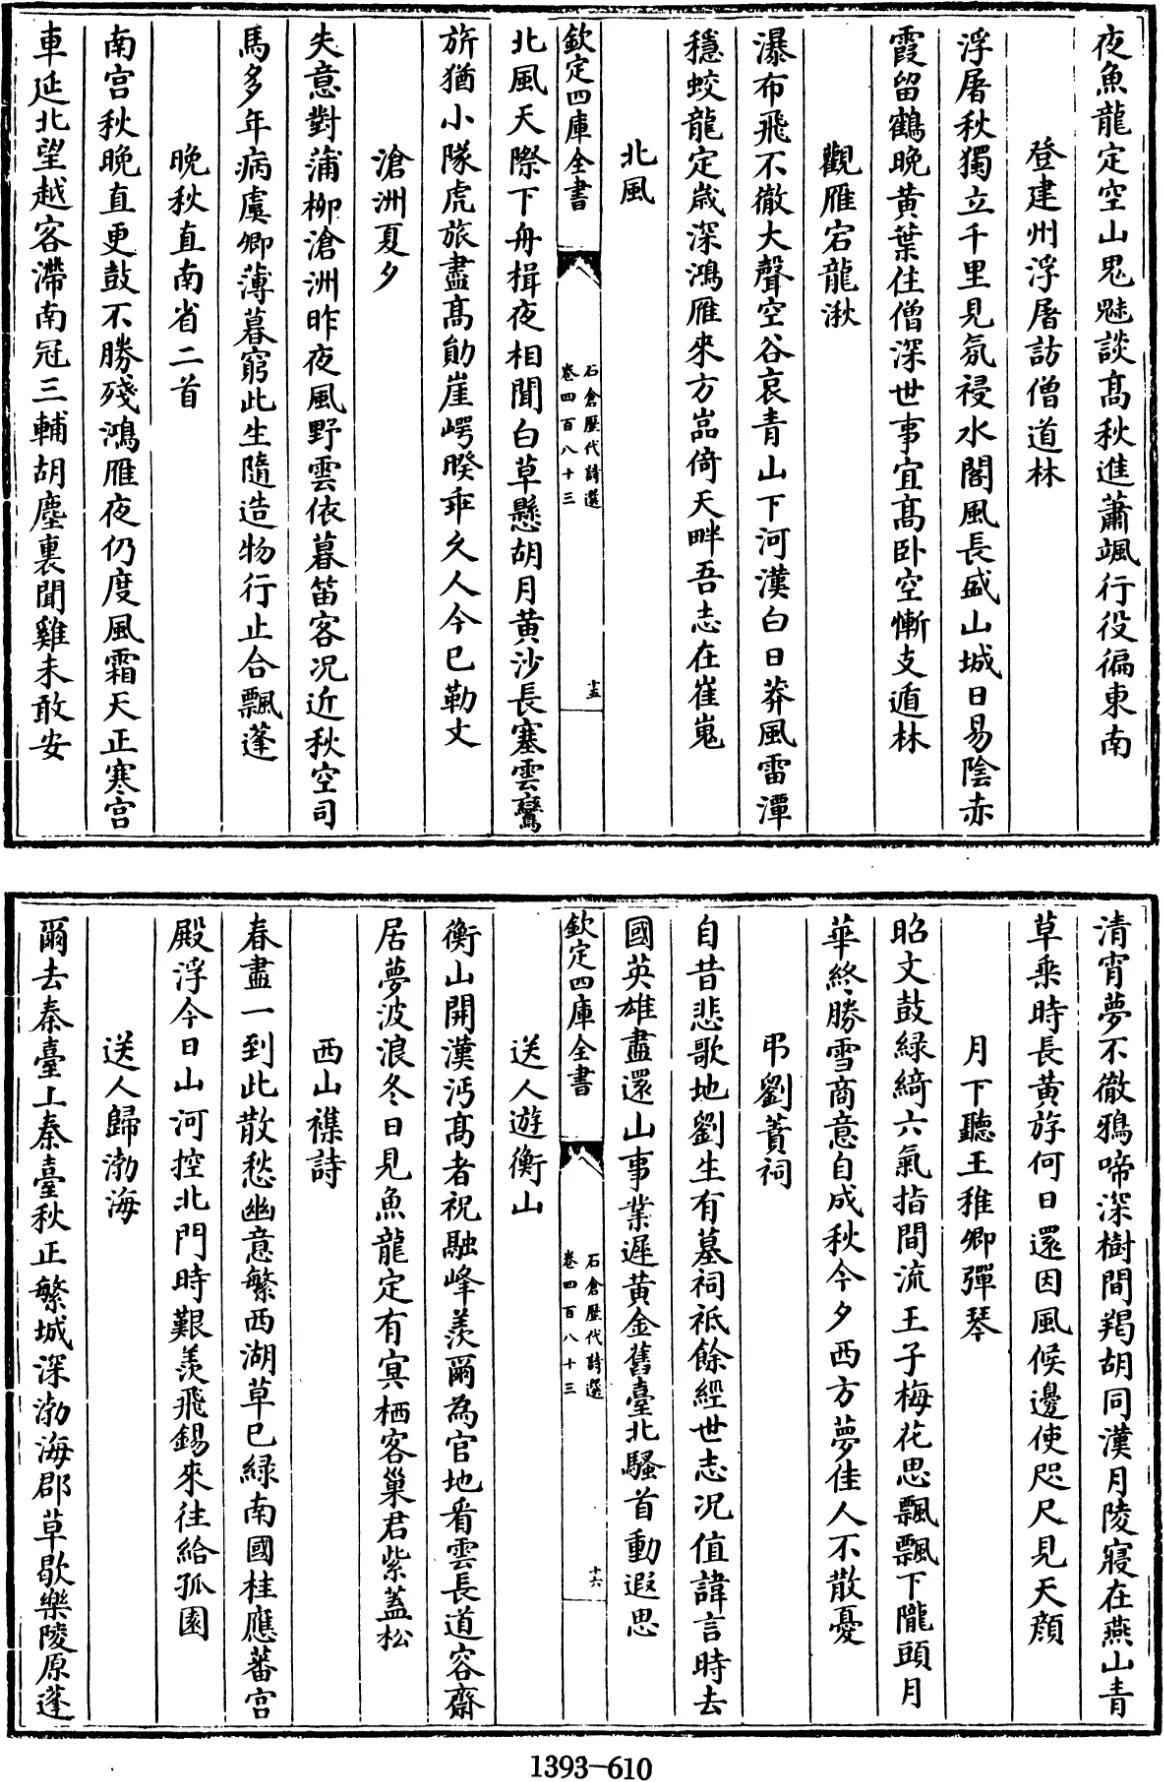 夜魚龍定空山鬼魅談髙秋進蕭颯行役徧東南
登建州浮屠訪僧道林
浮屠秋獨立千里見氛祲水閣風長盛山城日易陰赤
霞留鶴晚黄葉住僧深世事宜髙臥空慚支遁林
觀雁宕龍湫
瀑布飛不徹大聲空谷哀青山下河漢白日莽風雷潭
穩蛟龍定嵗深鴻雁來方嵓倚天畔吾志在崔嵬
北風
欽定四庫全書
石倉歴代詩選
卷四百八十三
十五
北風天際下舟揖夜相聞白草懸胡月黄沙長塞雲鸞
旂猶小隊虎旅盡髙勛崖崿暌乖久人今已勒文
滄洲夏夕
失意對蒲柳滄洲昨夜風野雲依暮笛客况近秋空司
馬多年病虞卿薄暮窮此生隨造物行止合飄蓬
晚秋直南省二首
南宫秋晚直更鼓不勝殘鴻雁夜仍度風霜天正寒宫
車延北望越客滯南冠三輔胡塵裏聞雞未敢安
清宵夢不徹鴉啼深樹間羯胡同漢月陵寢在燕山青
草乗時長黄旂何日還因風候邊使咫尺見天顔
月下聽王稚卿彈琴
昭文鼓緑綺六氣指間流王子梅花思飄飄下隴頭月
華終勝雪商意自成秋今夕西方夢佳人不散憂
弔劉蕡祠
自昔悲歌地劉生有墓祠祗餘經世志况值諱言時去
國英雄盡還山事業遲黄金舊臺北騷首動遐思
欽定四庫全書
石倉歴代詩選
卷四百八十三
十六
送人遊衡山
衡山開漢沔髙者祝融峰羨爾為官地看雲長道容齋
居夢波浪冬日見魚龍定有寞栖客巢君紫葢松
西山襍詩
春盡一到此散愁幽意繁西湖草已緑南國桂應蕃宫
殿浮今日山河控北門時艱羨飛錫來往給孤園
送人歸渤海
爾去秦臺上秦臺秋正繁城深渤海郡草歇樂陵原蓬
1393-610